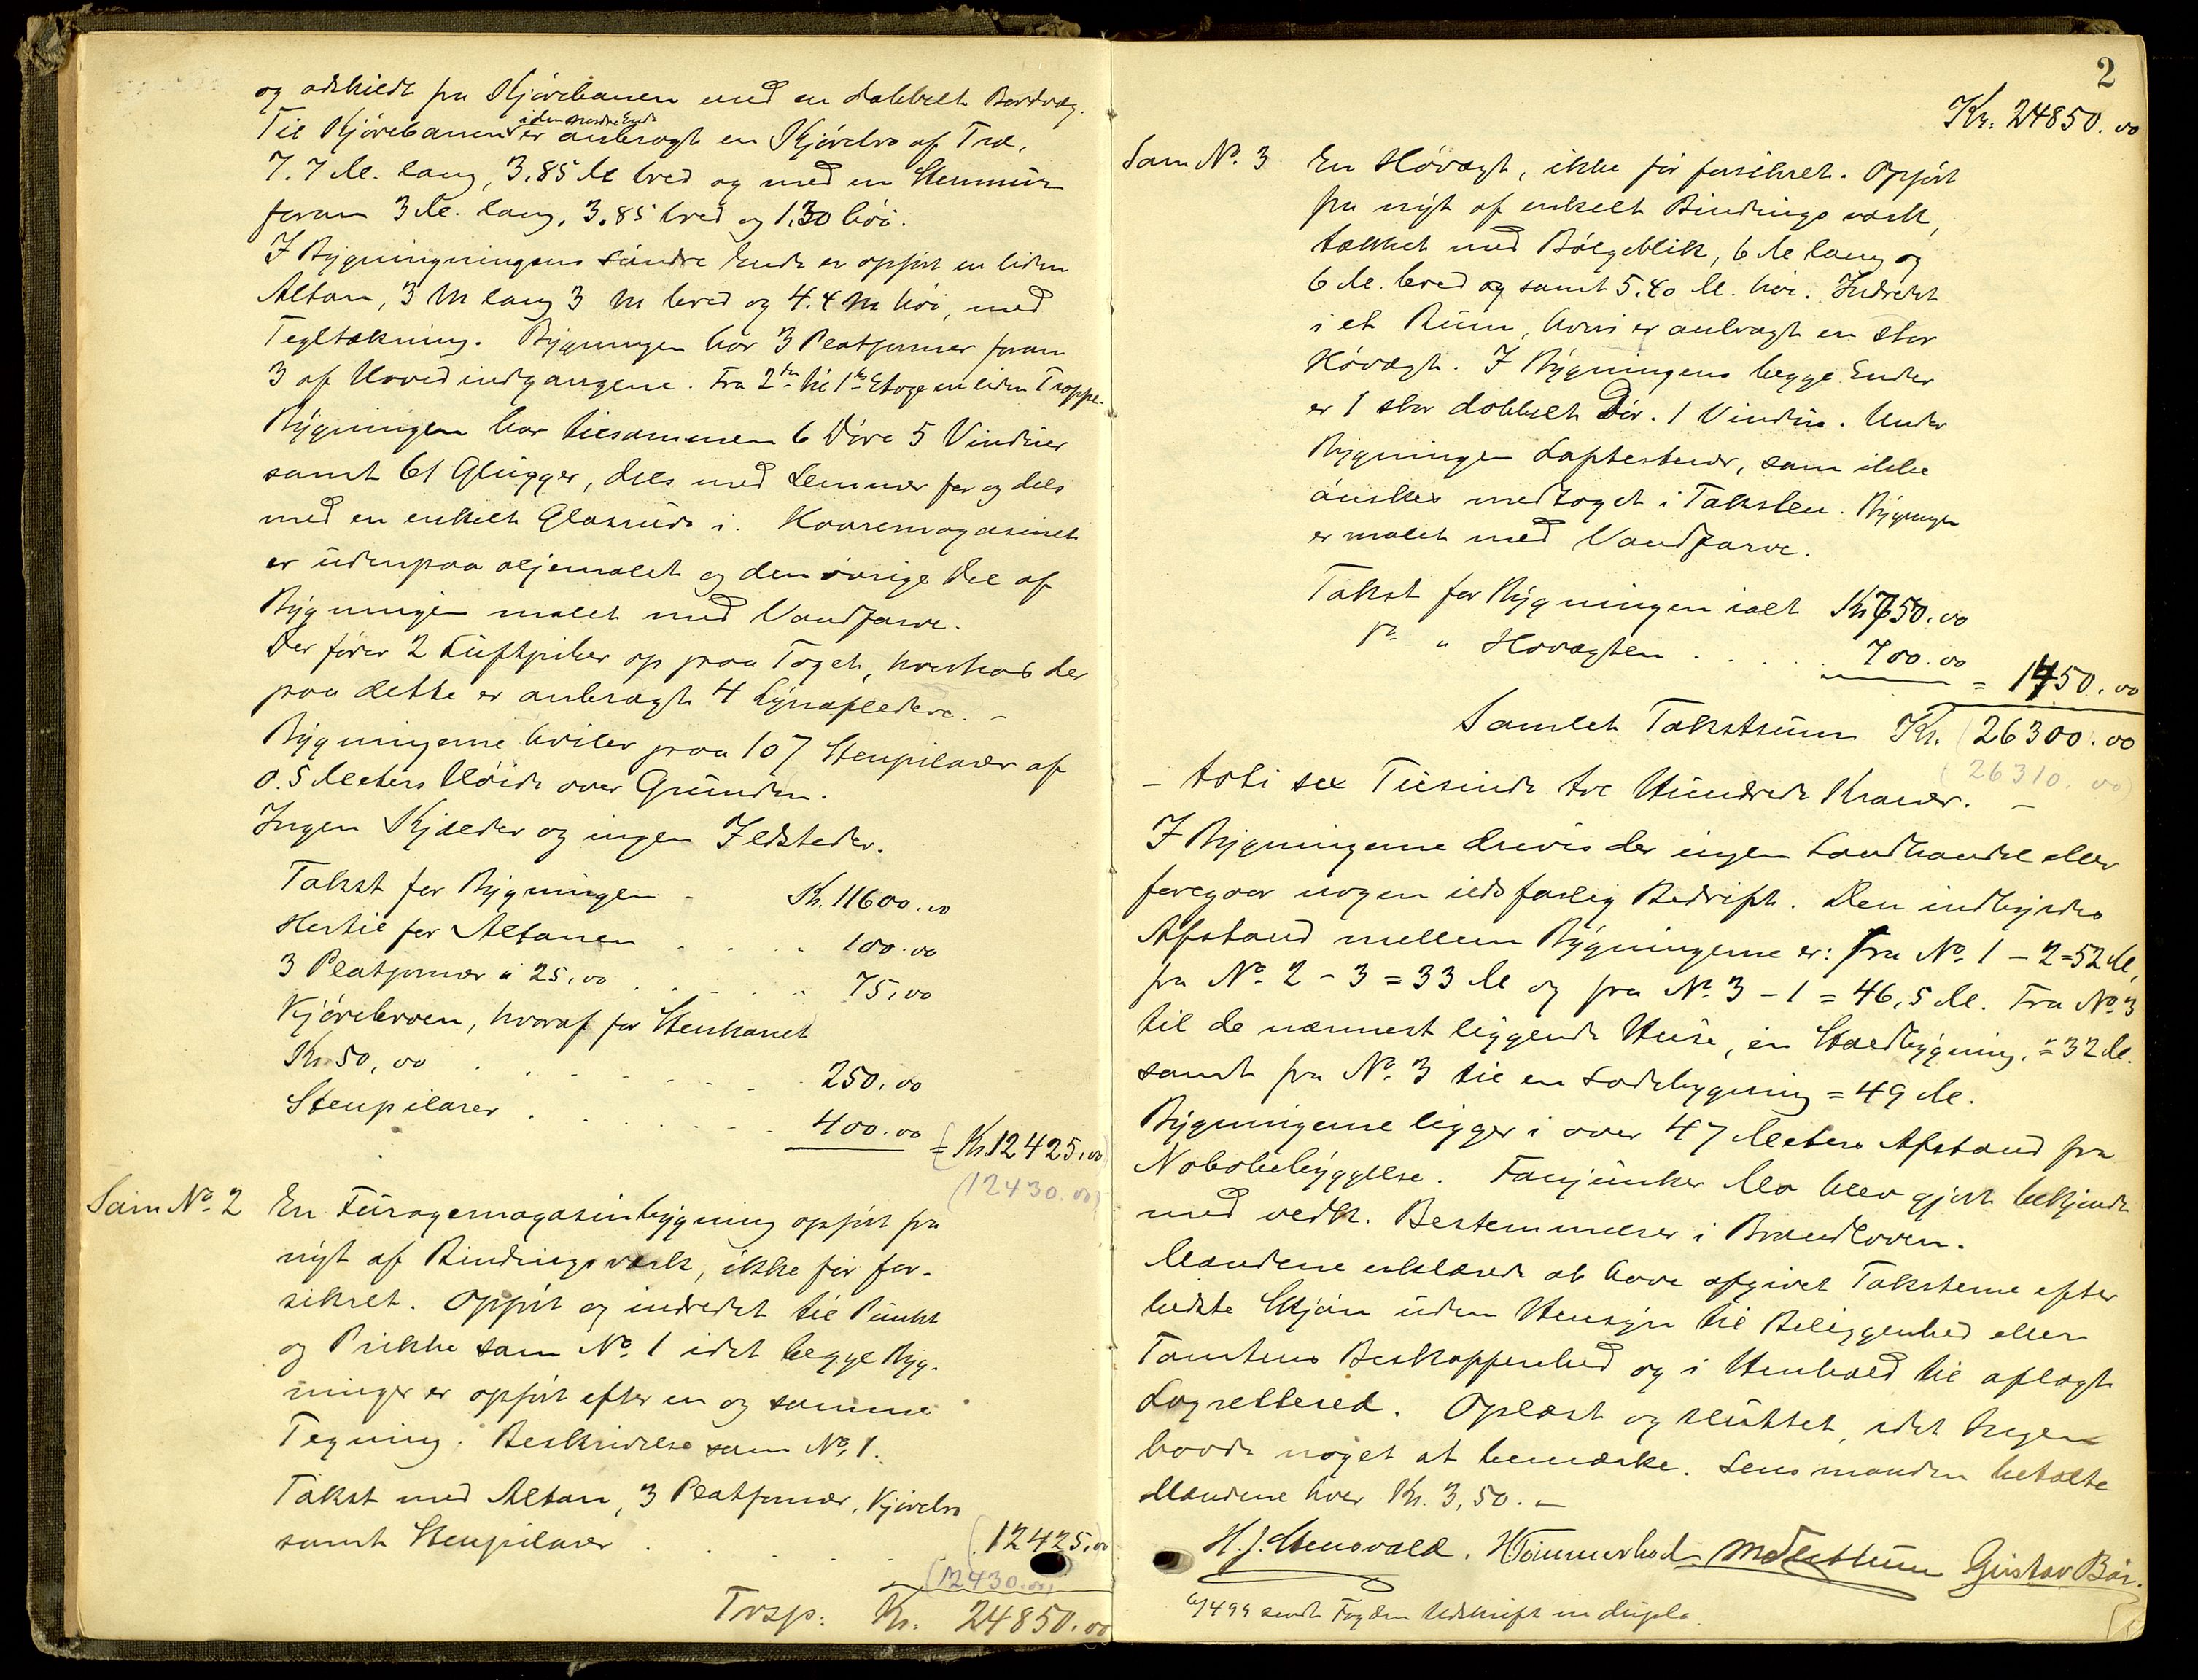 og adskildt fra Kjørebanen med en dobbelt Bordvæg.
Til Kjørebanen i den nordre Ende er anbragt en Kjørebro af Træ,
7.7 M. lang, 3.85 M bred og med en Stenmur
foran 3 M. lang, 3.85 bred og 1.30 høi.
I Bygningningens søndre Ende er opført en liden
Altan, 3 M lang 3 M bred og 4.4 M høi, med
Tegltækning. Bygningen har 3 Platformer foran
3 af Hovedindgangene. Fra 2den til 1ste Etage en liden Trappe.
Bygningen har tilsammen 6 Døre 5 Vinduer
samt 61 Glugger, dels med Lemmer for og dels
med en enkelt Glasrude i. Kornmagasinet
er udenpaa oljemalet og den øvrige Del af
Bygningen malet med Vandfarve.
Der fører 2 Luftpiber op paa Taget, hvorhos der
paa dette er anbragt 4 Lynafledere. –
Bygningerne hviler paa 107 Stenpilarer af
0.5 Meters Høide over Grunden.
Ingen Kjælder og ingen Ildsteder.
Takst for Bygningen - Kr. 11600.00
Hertil for Altanen . . . . 100.00
3 Platformer à 25,00 . . . . 75,00
Kjørebroen, hvoraf for Stenkarret
Kr. 50,00 . . . . . . . 250,00
Stenpilarer . . . . . . 400.00 = (Kr. 12425,00)
(12430.00)
Sam No. 2 En Furagemagasinbygning opført fra
nyt af Bindingsværk, ikke før for-
sikret. Opført og indredet til Punkt
og Prikke som No. 1 idet begge Byg-
ninger er opført efter en og samme
Tegning. Beskrivelse som No. 1.
Takst med Altan, 3 Platformer, Kjørebro
samt Stenpilarer . . . . . (12425,00)
(12430.00)
Trsp: Kr. 24850.00
2
Kr. 24850.00
Sam No. 3 En Høvægt, ikke før forsikret. Opført
fra nyt af enkelt Bindingsværk,
tækket med Bølgeblik, 6 M lang og
6 M. bred og samt 5.40 M. høi. Indredet
i et Rum, hvori er anbragt en stor
Høvægt. I Bygningens begge Ender
er 1 stor dobbelt Dør. 1 Vindu. Under
Bygningen Loftesbuer, som ikke
ønskes medtaget i Taksten. Bygningen
er malet med Vandfarve.
Takst for Bygningen ialt Kr 750.00
" " Hovægten . . . . . 700.00 = 1450.00
Samlet Takstsum Kr. (26300.00
(26310.00)
– toti sex Tusinde tre Hundrede Kroner. –
I Bygningerne drives der ingen Landhandel eller
foregaar nogen ildsfarlig Bedrift. Den indbyrdes
Afstand mellem Bygningerne er: Fra No. 1 – 2 = 52 M,
fra No. 2 – 3 = 33 M og fra No. 3 – 1 = 46,5 M. Fra No. 3
til de nærmest liggende Huse, en Staldbygning, = 32 M.
samt fra No. 3 til en Ladebygning = 49 M.
Bygningerne ligger i over 47 Meters Afstand fra
Nabobebyggelse. Fanjunker Mo blev gjort bekjendt
med vedk. Bestemmelser i Brandloven.
Mændene erklærede at have afgivet Taksterne efter
bedste Skjøn uden Hensyn til Beliggenhed eller
Tomtens Beskaffenhed og i Henhold til aflagt
Lagretteed. Oplæst og sluttet, idet Ingen
havde noget at bemærke. Lensmanden betalte
Mændene hver Kr. 3,50. –
H. J. Stensvald. HTømmerhol Gustav Bär.
6/4 99 sendt Fogden Udskrift in duplo.